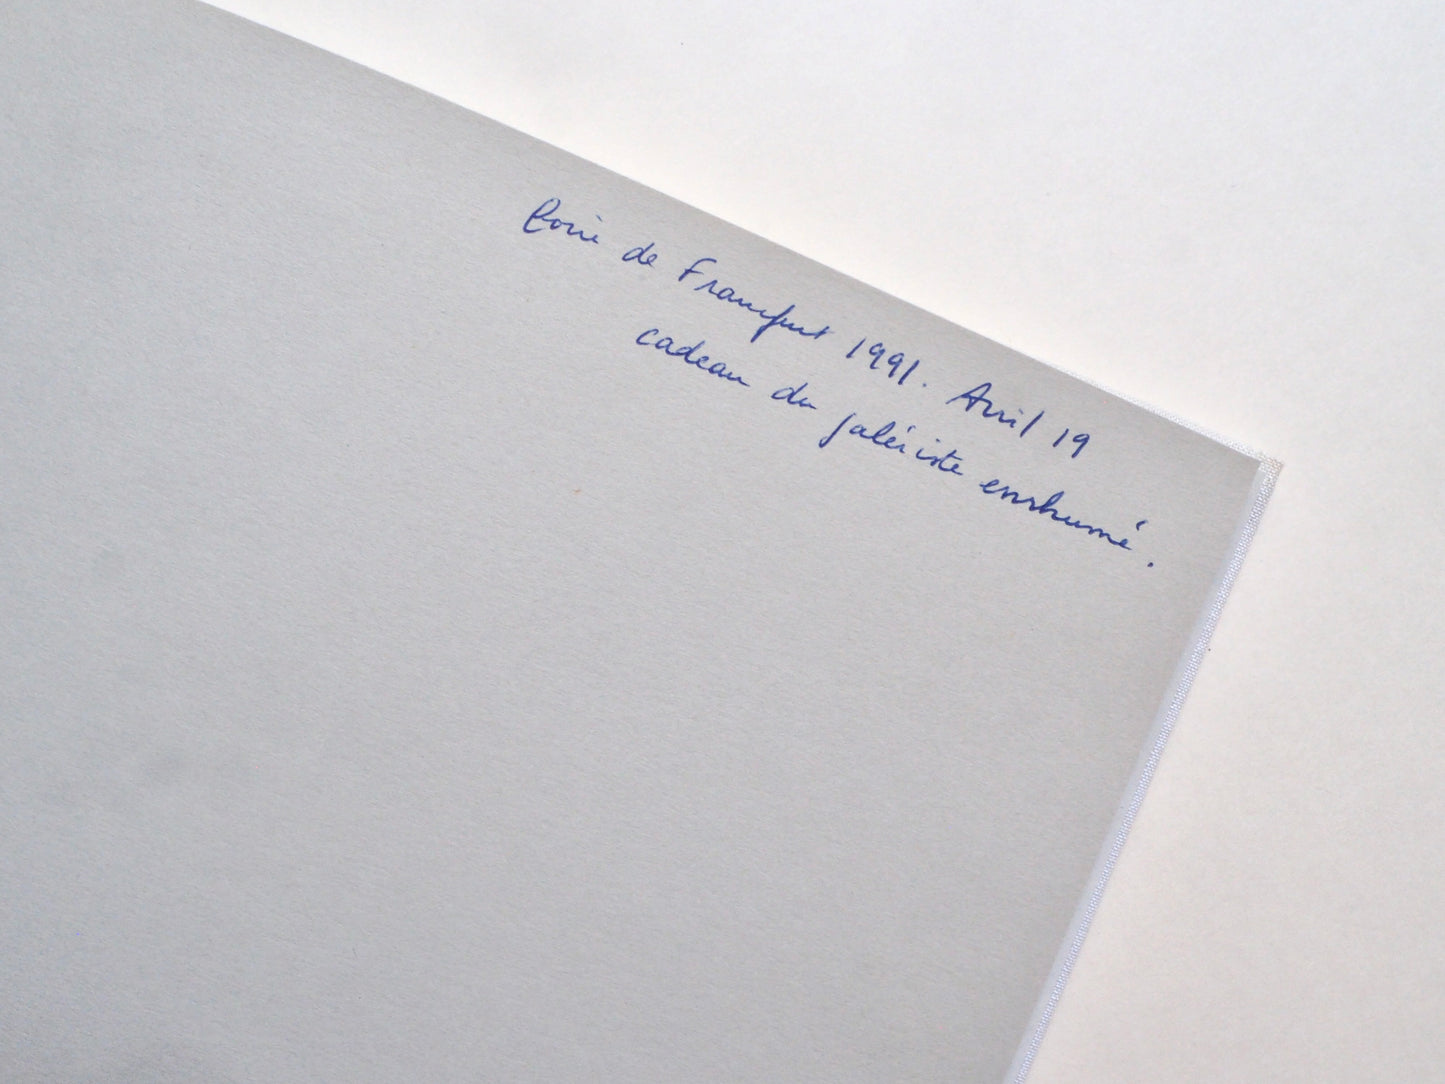 Foire de Francfort 1991. Avril 19
cadeau du galériste enrhumé.